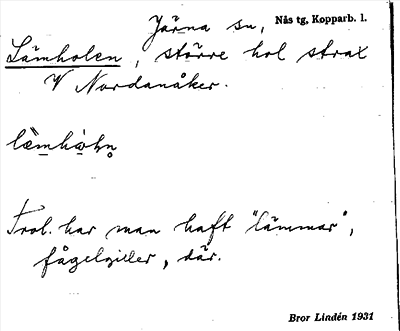 Järna sn, Nås tg, Kopparb. l.
Lämholen, större hol strax
V Nordanåker.
Trol. har man haft "lämmar",
fågelgiller, där.
Bror Lindén 1931